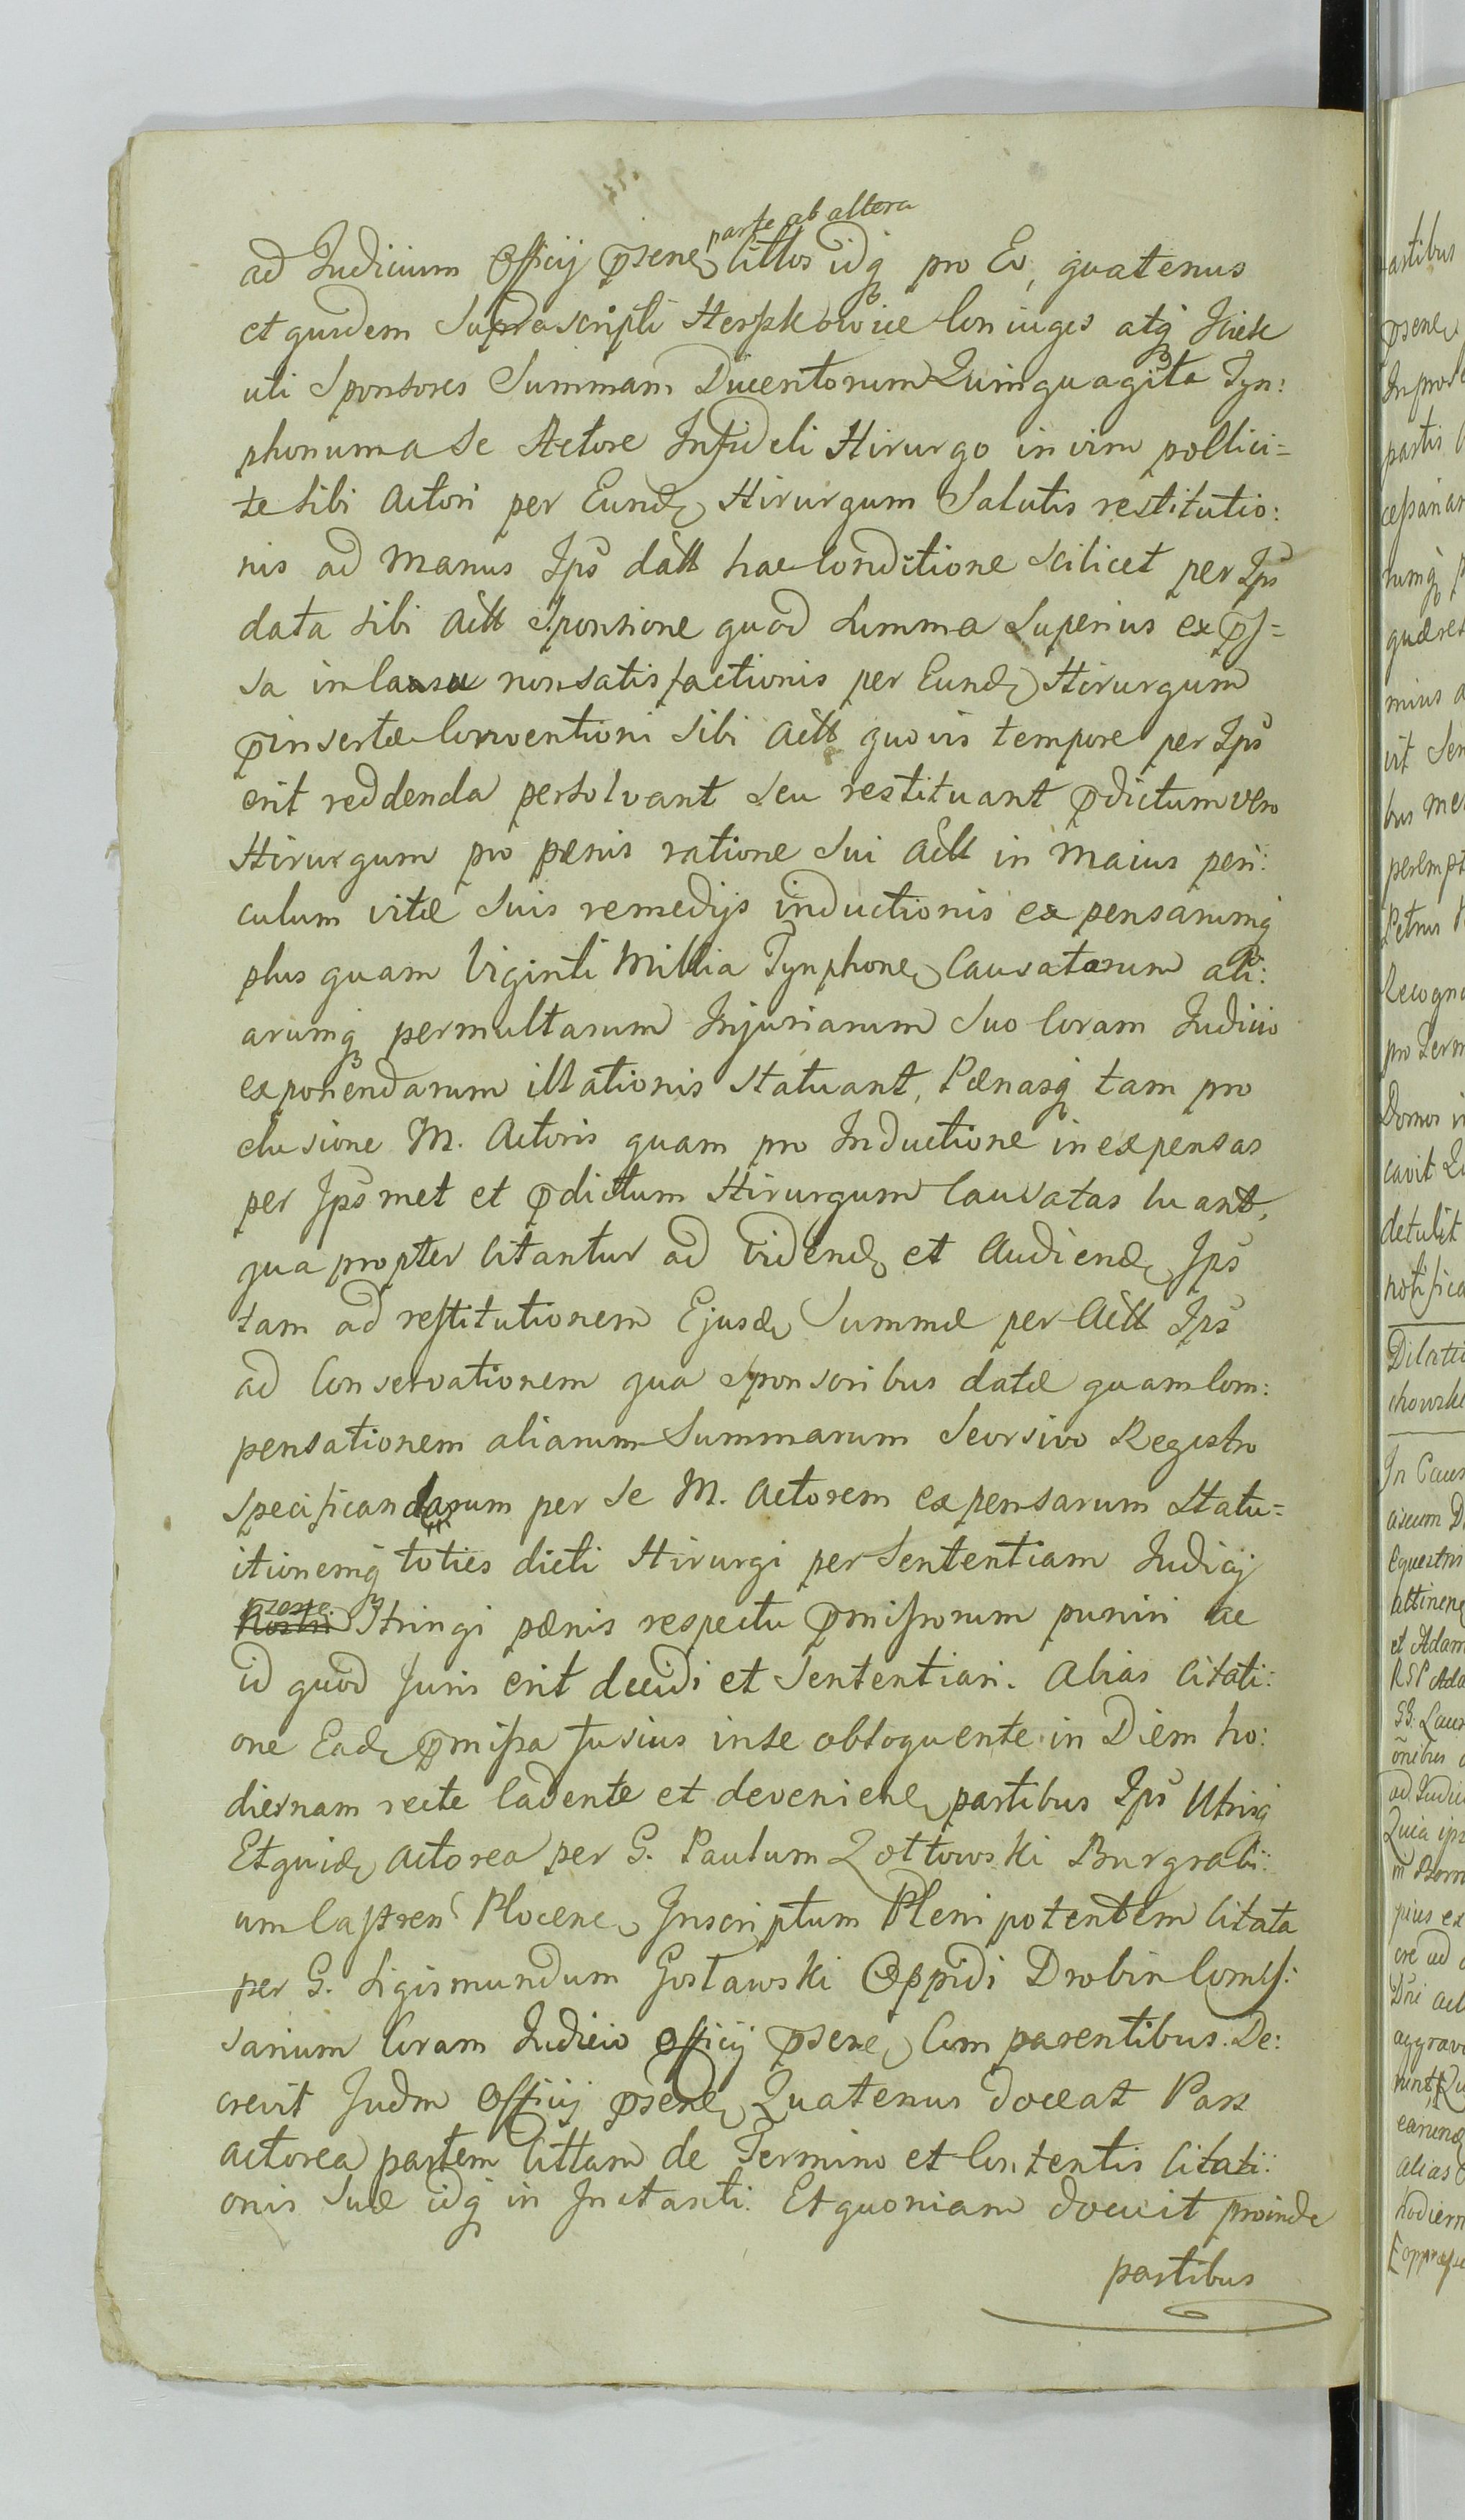 parte ab altera
ad Judicium Officij p̄sens Cittos idq pro Eo, quatenus
et quidem Supra scripti Herszkowice Coniuges atq Jciek
uti Sponsores Summam Ducentorum Quinquaginta Tyn:
phonum a Se Actore Infideli Hirurgo in vim pollici=
te sibi Actori per Eund Hirurgum Salutis restitutio:
nis ad manus Ips datt hac Conditione scilicet per Ips
data sibi Actt Sponsione quod Summa Superius exp̄s=
sa in Casu non satisfactionis per Eund Hirurgum
p̄insertæ Conventioni sibi Actt quovis tempore per Ips
erit reddenda persolvant seu restituant p̄dictum vero
Hirurgum pro pænis ratione sui Actt in maius peri:
culum vitæ suis remedijs inductionis expensarumq
plus quam Viginti Millia Tynphone Causatarum ali:
arumq permultarum Injuriarum suo Coram Judicio
exponendarum illationis statuant, Pænasq tam pro
elusione M. Actoris quam pro Inductione in expensas
per Ips met et p̄dictum Hirurgum Causatas luant,
qua propter Citantur ad Vidend et Audiend Ips
tam ad restitutionem Ejusd Summæ per Actt Ips
ad Conservationem qua Sponsoribus datæ quam Com:
pensationem aliarum Summarum Seorsivo Registro
specificandarum per se M. Actorem expensarum Statu=
itionemq toties dicti Hirurgi per Sententiam Judicij
Nostri p̄sens Stringi pænis respectu p̄missorum puniri ac
id quod Juris erit decidi et Sententiari. Alias Citati:
one Ead p̄missa fusius in se obloquente in Diem ho:
diernam recte Cadente et deveniene partibus Ips Utrisq
Et quid Actorea per G. Paulum Zottowski Burgrabi:
um Castren Plocene Inscriptum Plenipotentem Citata
per G. Sigismundum Gostawski Oppidi Drobin Comis:
sarium Coram Judicio Officij p̄sene Com parentibus. De:
crevit Judm Officij p̄sene Quatenus doceat Pars
actorea partem Cittam de Termino et Contentis Citati:
onis Suæ idq in Instanti. Et quoniam docuit proinde
partibus